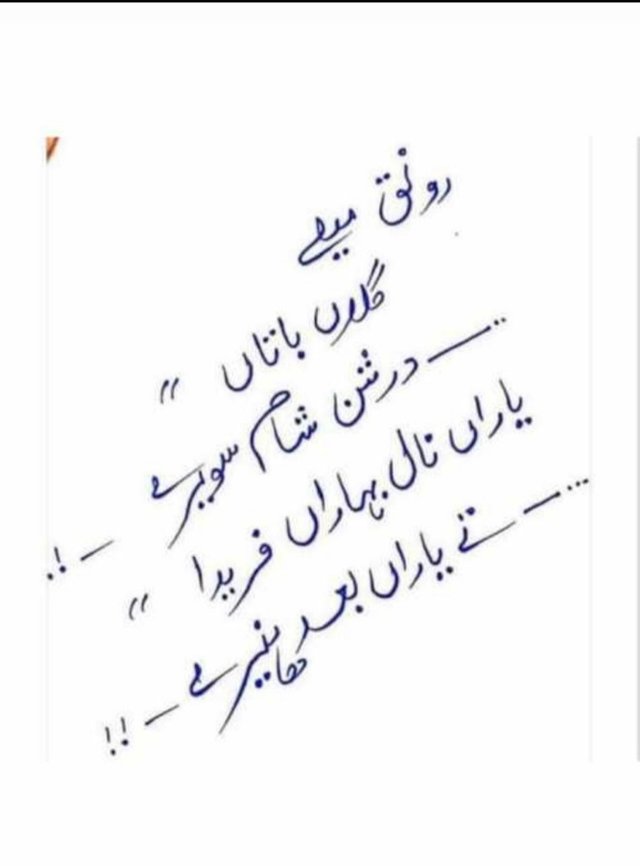 رونق میلے
گلاں باتاں "
... — درشن شام سویرے — !!
یاراں نال بہاراں فریدا "
... — تے یاراں بعد ہنیرے — !!